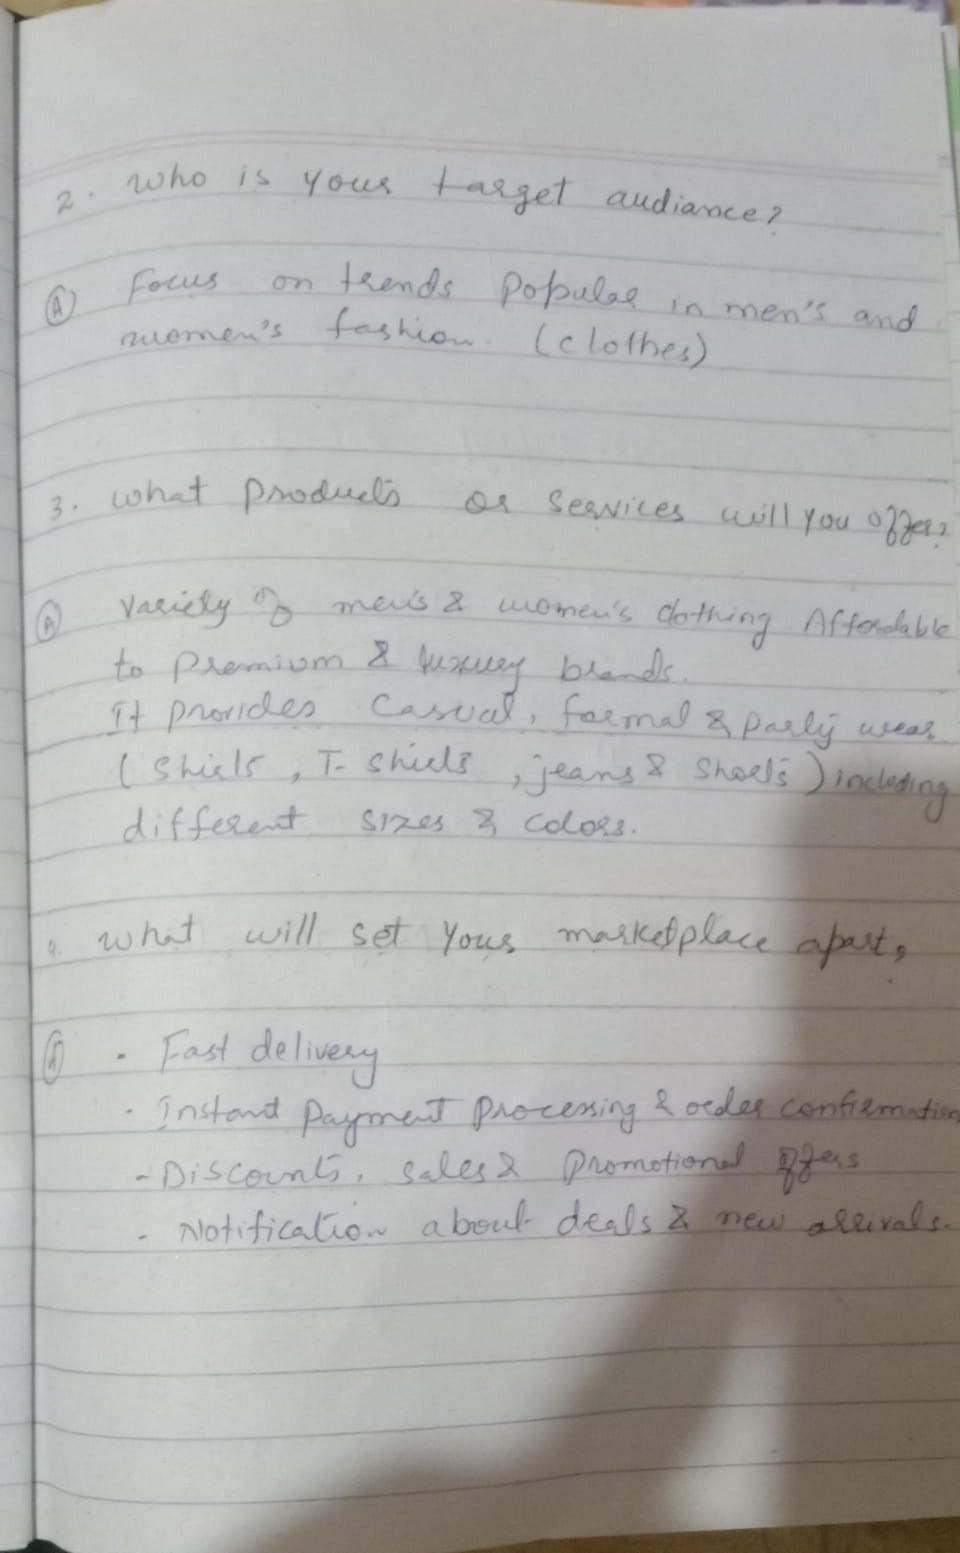 2. Who is your target audiance?
(A) Focus on trends Popular in men's and
women's fashion. (clothes)
3. What Products or Services will you offer?
(A) Variety of men's & women's clothing Affordable
to Premium & luxury brands.
It provides Casual, formal & party wear
(Shirts, T-shirts, jeans & Shorts) including
different sizes & colors.
4. What will set your marketplace apart?
(A) • Fast delivery
• Instant Payment Processing & order confirmation
- Discounts, sales & Promotional offers
- Notification about deals & new arrivals.